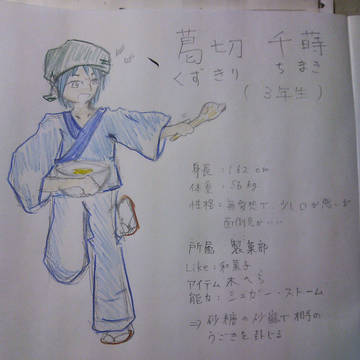 葛切 千蒔
くずきり ちまき
(3年生)
身長：162cm
体重：56kg
性格：無愛想で、少し口が悪いが
面倒見がいい
所属 製菓部
Like：和菓子
アイテム 木べら
能力：シュガー・ストーム
⇒ 砂糖の砂嵐で相手の
うごきを封じる